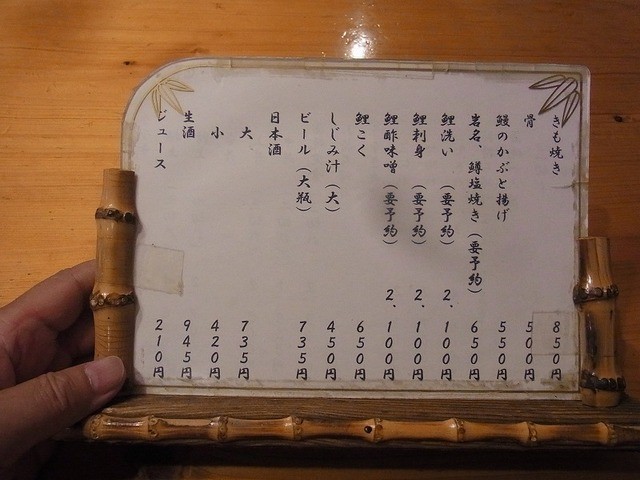 きも焼き 850円
骨 500円
鰻のかぶと揚げ 550円
岩名、鱒塩焼き（要予約） 650円
鯉洗い（要予約） 2、100円
鯉刺身（要予約） 2、100円
鯉酢味噌（要予約） 2、100円
鯉こく 650円
しじみ汁（大） 450円
ビール（大瓶） 735円
日本酒
大 735円
小 420円
生酒 945円
ジュース 210円